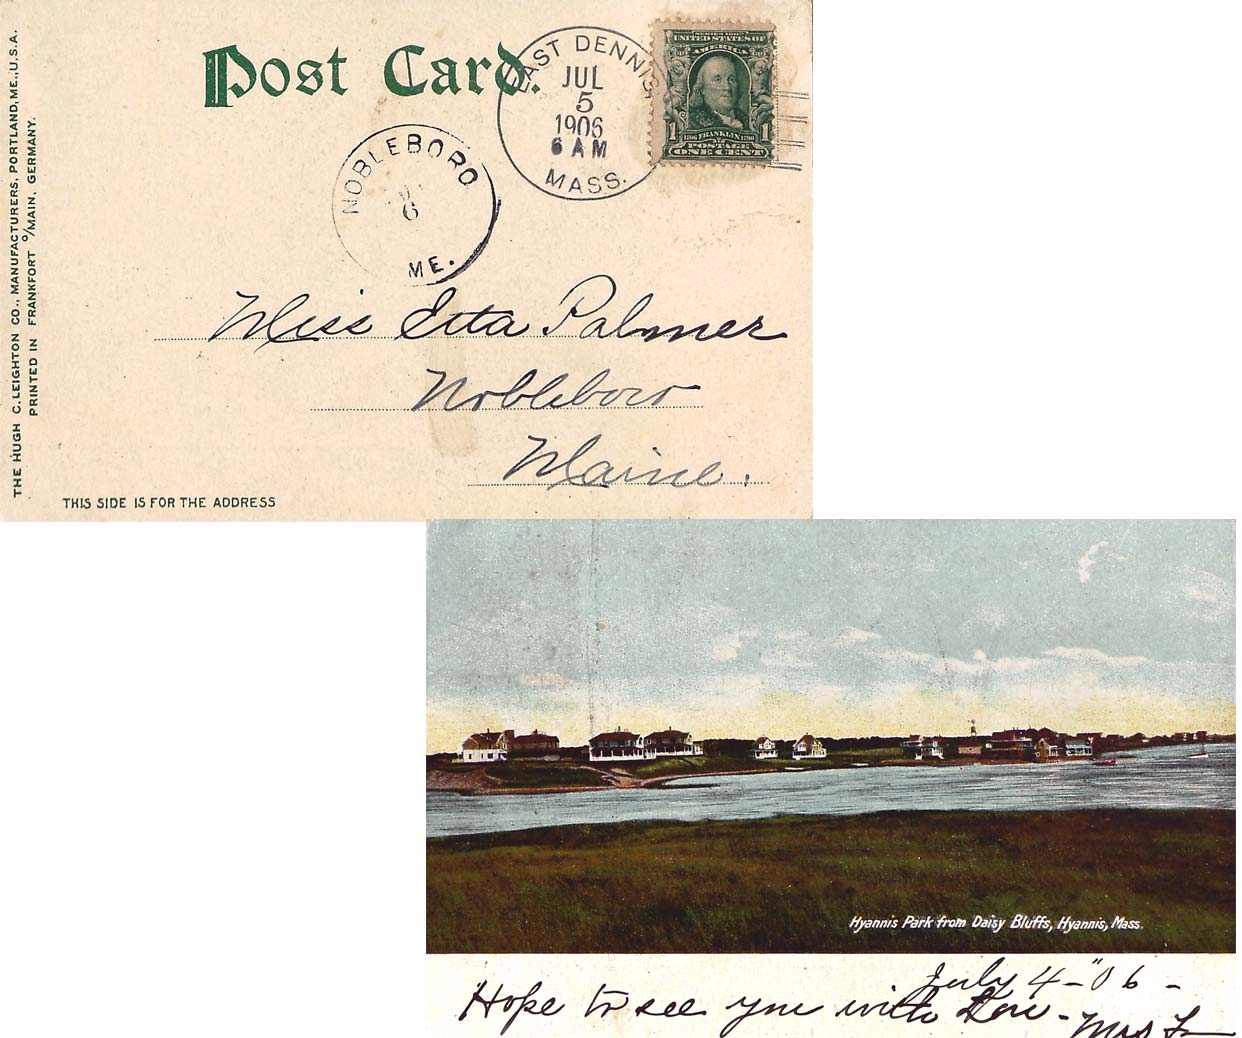 THE HUGH C. LEIGHTON CO., MANUFACTURERS, PORTLAND, ME., U.S.A.
PRINTED IN FRANKFORT o/MAIN, GERMANY.
Post Card.
EAST DENNIS
JUL
5
1906
6 AM
MASS.
SERIES 1902
UNITED STATES OF
AMERICA
1 1706 FRANKLIN 1790 1
POSTAGE
ONE CENT
NOBLEBORO
6
ME.
Miss Etta Palmer
Nobleboro
Maine.
THIS SIDE IS FOR THE ADDRESS
Hyannis Park from Daisy Bluffs, Hyannis, Mass.
July 4-"06-
Hope to see you with